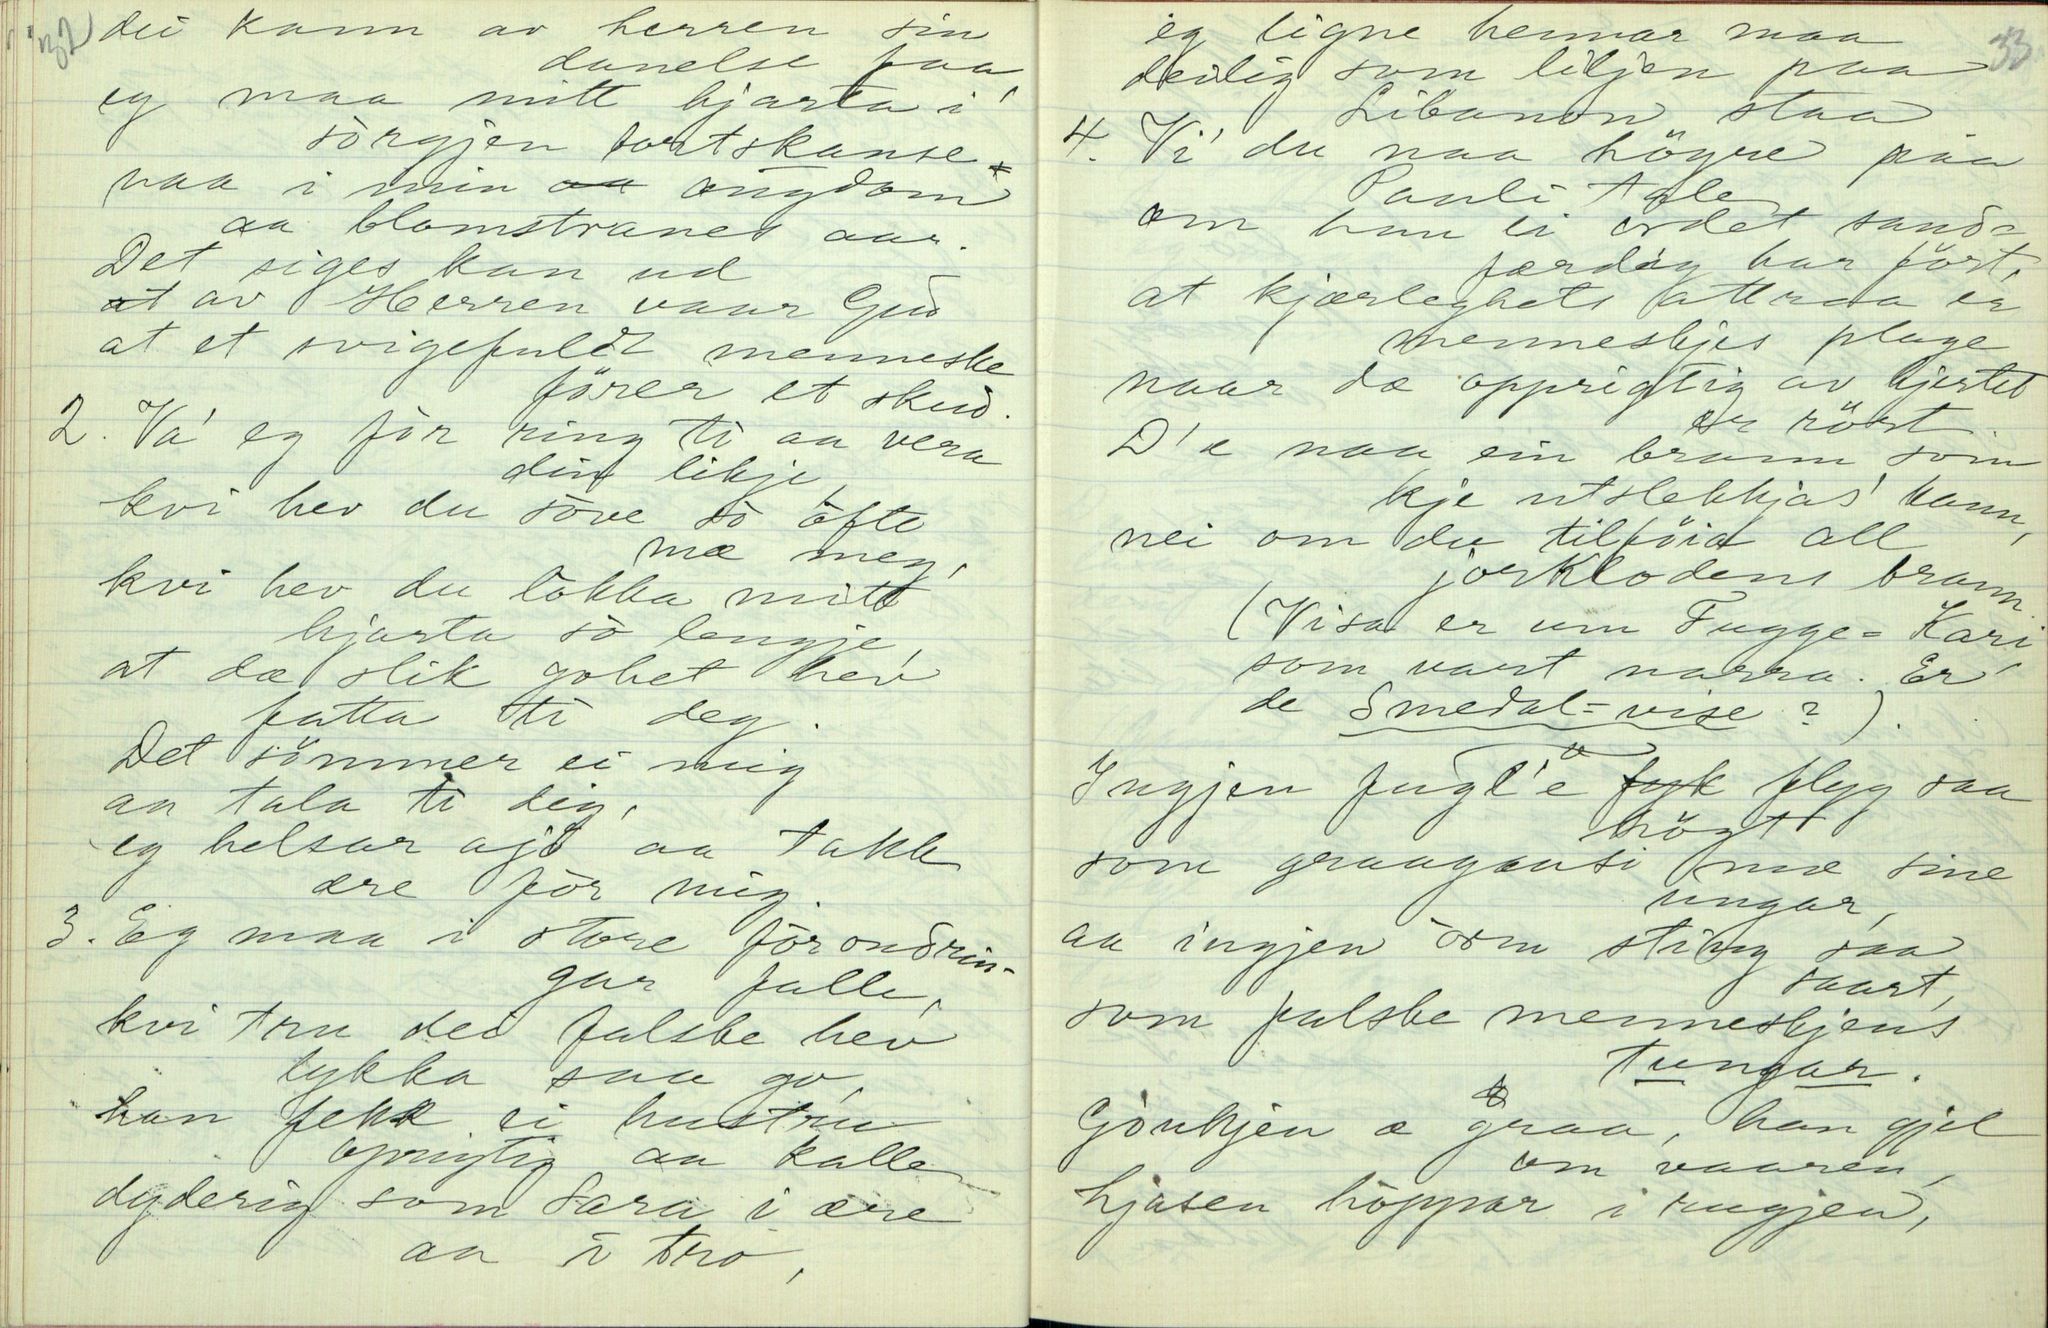 32
du kann av herren sin
danelse faa
eg maa mitt hjarta i
sörgjen fortskanse
naa i min ongdom
aa blomstranes aar.
Det siges kan ud
av Herren vaar Gud
at et svigefuldt menneske
förer et skud.
2. Va' eg för ring ti aa vera
din likje
kvi hev du söve so ofte
mæ meg,
kvi hev du lokka mitt
hjarta so lengje,
at dæ slik gohet hev
fatta ti deg.
Det sömmer ei mig
aa tala ti dig,
eg helsar ajö aa takk
ære för mig.
3. Eg maa i store förondrin-
gar falle,
kvi tru dei falske hev
lykka saa go,
han fekk ei hustru
oprigtig aa kalle
dyderig som Sara i ære
aa i tro,
33
eg ligne hennar maa
deilig som liljen paa
Libanon staa
4. Vi' du naa högre paa
Pauli tale
om han ei ordet sand-
færdig har fört,
at kjærleghets attraa er
menneskjes plage
naar dæ opprigtig av hjertet
er rört.
D'æ naa ein brann som
kje utslekkjas' kann,
nei om du tilföid all
jorklodens brann.
(Visa er um Fugge-Kari
som vart narra. Er
de Smedal-vise?).
Ingjen fugl'e flyg saa
högt
som graagaasi mæ sine
ungar,
aa ingjen orm sting saa
saart,
som falske menneskjens
tungar.
Göukjen æ graa, han gjel
om vaaren,
hjasen höppar i rugjen,